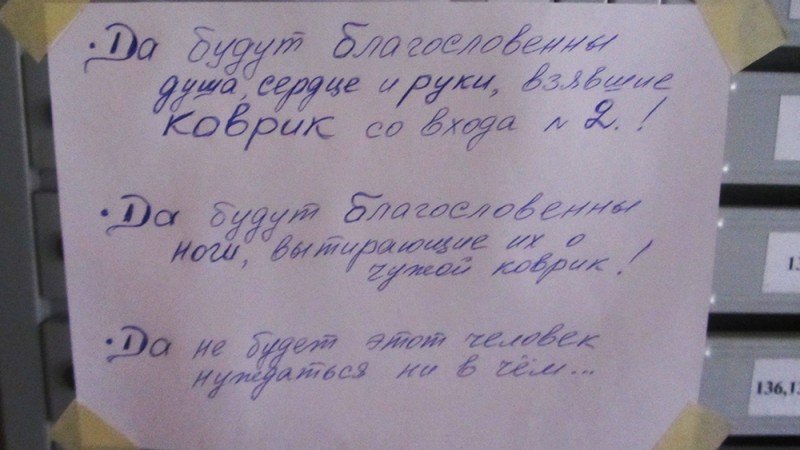 · Да будут благословенны
душа, сердце и руки, взявшие
коврик со входа № 2.!
· Да будут благословенны
ноги, вытирающие их о
чужой коврик!
· Да не будет этот человек
нуждаться ни в чём...
136,13